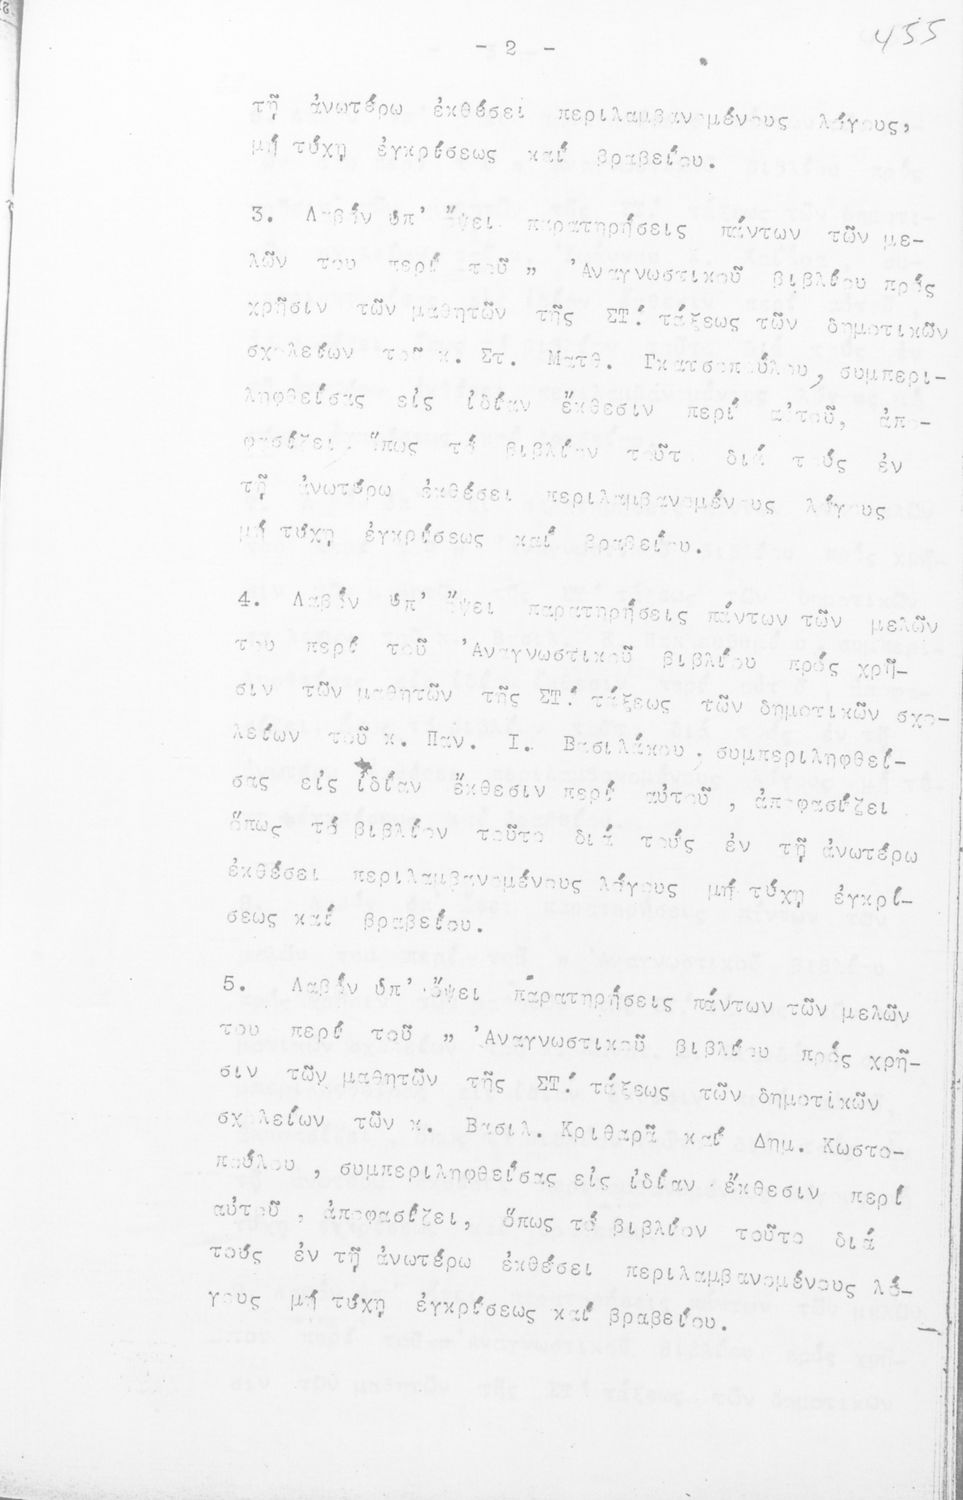 455
- 2 -
τῇ ἀνωτέρω ἐκθέσει περιλαμβανομένους λόγους,
μή τύχῃ ἐγκρίσεως καί βραβείου.
3. Λαβόν ὑπ' ὄψει παρατηρήσεις πάντων τῶν με-
λῶν του περί τοῦ " Ἀναγνωστικοῦ βιβλίου πρός
χρῆσιν τῶν μαθητῶν τῆς ΣΤ΄ τάξεως τῶν δημοτικῶν
σχολείων τοῦ κ. Στ. Ματθ. Γκατσοπούλου, συμπερι-
ληφθείσας εἰς ἰδίαν ἔκθεσιν περί αὐτοῦ, ἀπο-
φασίζει ὅπως τό βιβλίον τοῦτο διά τούς ἐν
τῇ ἀνωτέρω ἐκθέσει περιλαμβανομένους λόγους
μή τύχῃ ἐγκρίσεως καί βραβείου.
4. Λαβόν ὑπ' ὄψει παρατηρήσεις πάντων τῶν μελῶν
του περί τοῦ Ἀναγνωστικοῦ βιβλίου πρός χρῆ-
σιν τῶν μαθητῶν τῆς ΣΤ΄ τάξεως τῶν δημοτικῶν σχο-
λείων τοῦ κ. Παν. Ι. Βασιλάκου, συμπεριληφθεί-
σας εἰς ἰδίαν ἔκθεσιν περί αὐτοῦ, ἀποφασίζει
ὅπως τό βιβλίον τοῦτο διά τούς ἐν τῇ ἀνωτέρω
ἐκθέσει περιλαμβανομένους λόγους μή τύχῃ ἐγκρί-
σεως καί βραβείου.
5. Λαβόν ὑπ' ὄψει παρατηρήσεις πάντων τῶν μελῶν
του περί τοῦ " Ἀναγνωστικοῦ βιβλίου πρός χρῆ-
σιν τῶν μαθητῶν τῆς ΣΤ΄ τάξεως τῶν δημοτικῶν
σχολείων τῶν κ. Βασιλ. Κριθαρᾶ καί Δημ. Κωστο-
πούλου, συμπεριληφθείσας εἰς ἰδίαν ἔκθεσιν περί
αὐτοῦ, ἀποφασίζει, ὅπως τό βιβλίον τοῦτο διά
τούς ἐν τῇ ἀνωτέρω ἐκθέσει περιλαμβανομένους λό-
γους μή τύχῃ ἐγκρίσεως καί βραβείου.